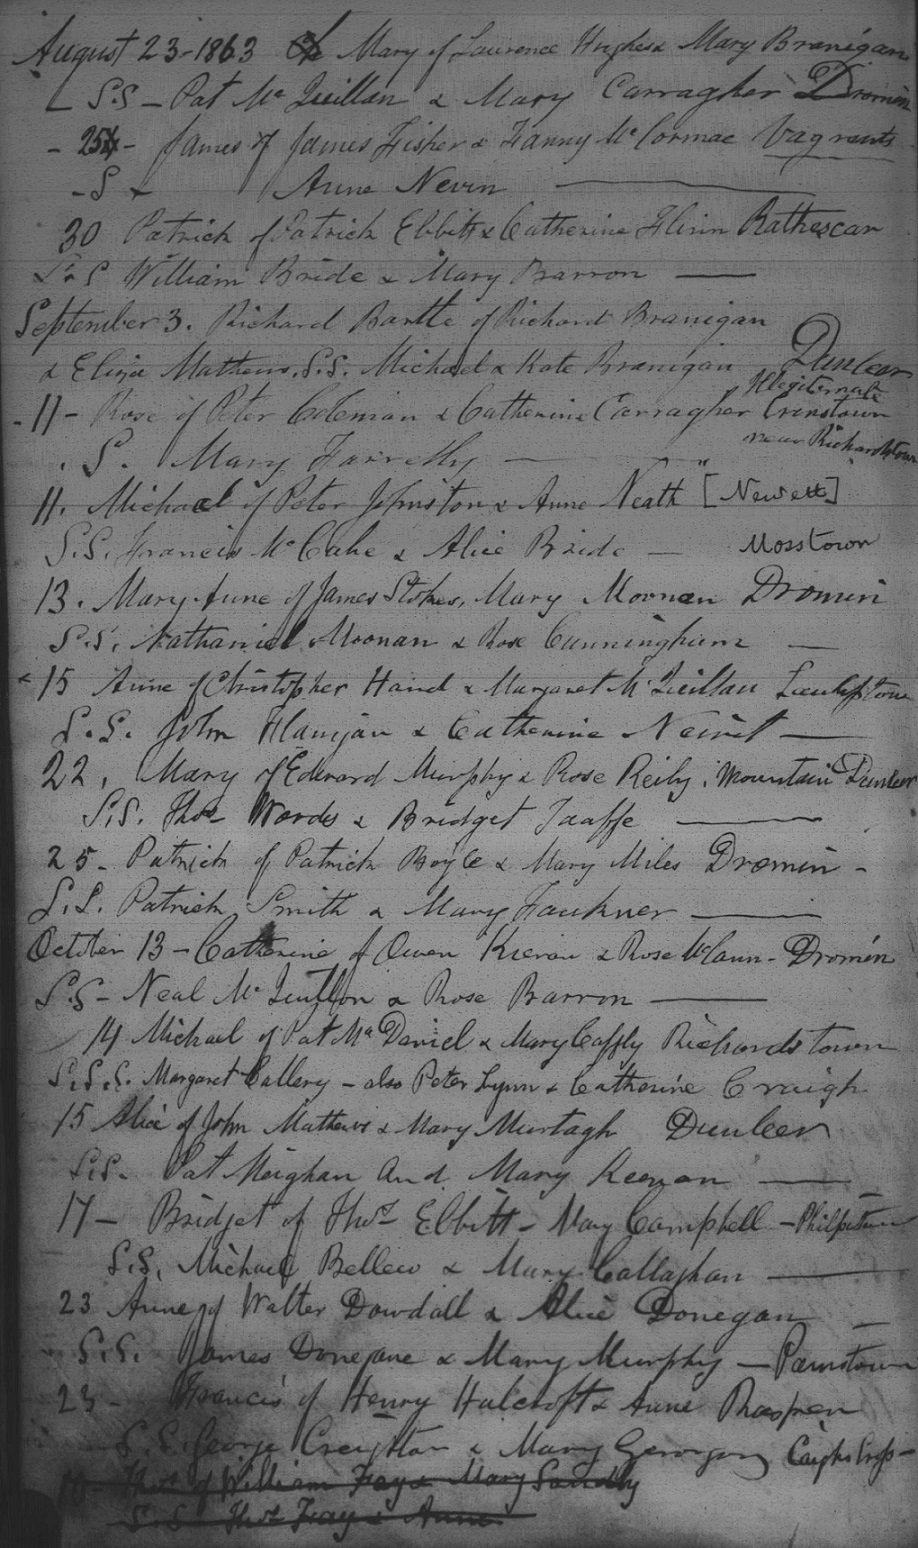 August 23-1863 Mary of Laurence Hughes & Mary Branigan
S.S - Pat Mc Quillan & Mary Carragher Dromin
- 25th - James of James Fisher & Fanny Mc Cormac Vagrants
- S - Anne Nevin
30 Patrick of Patrick Ebbitt & Catherine Flinn Rathescar
S.S William Bride & Mary Barron
September 3. Richard Bartle of Richard Branigan
& Eliza Mathews. S.S. Michael & Kate Branigan Dunleer
Illegitimate
- 11 - Rose of Peter Coleman & Catherine Carragher
near Richardstown
. S. Mary Farrelly
11. Michael of Peter Johnston & Anne Neath" [Newett]
S.S. Francis McCabe & Alice Bride - Mosstown
13. Mary Anne of James Stokes, Mary Moonan Dromin
S.S. Nathaniel Moonan & Rose Cunningham
15 Anne of Christopher Hand & Margaret Mc Quillan
S.S. John Flanigan & Catherine
22, Mary of Edward Murphy & Rose Reily. Mountain Dunleer
S.S. Thos Woods & Bridget Taaffe
25 - Patrick of Patrick Boyle & Mary Miles Dromin -
S.S. Patrick Smith & Mary Faukner
October 13 - Catherine of Owen Kieran & Rose McCann - Dromin
S.S - Neal Mc Quillon & Rose Barron
14 Michael of Pat Mc Daniel & Mary Caffly Richardstown
S.S.S. Margaret Callery - also Peter Lynn & Catherine Craigh
15 Alice of John Mathews & Mary Murtagh Dunleer
S.S. Pat Meighan and Mary Keenan
17 - Bridget of Thos Ebbitt - Mary Campbell - Philpstown
S.S. Michael Bellew & Mary Callaghan
23 Anne of Walter Dowdall & Alice Donegan
S.S. James Donegane & Mary Murphy - Painstown
23 - Francis of Henry Halcroft & Anne
S.S. George Creighton & Mary
10 - Thos of William Fay & Mary
S.S Thos Fay & Anne